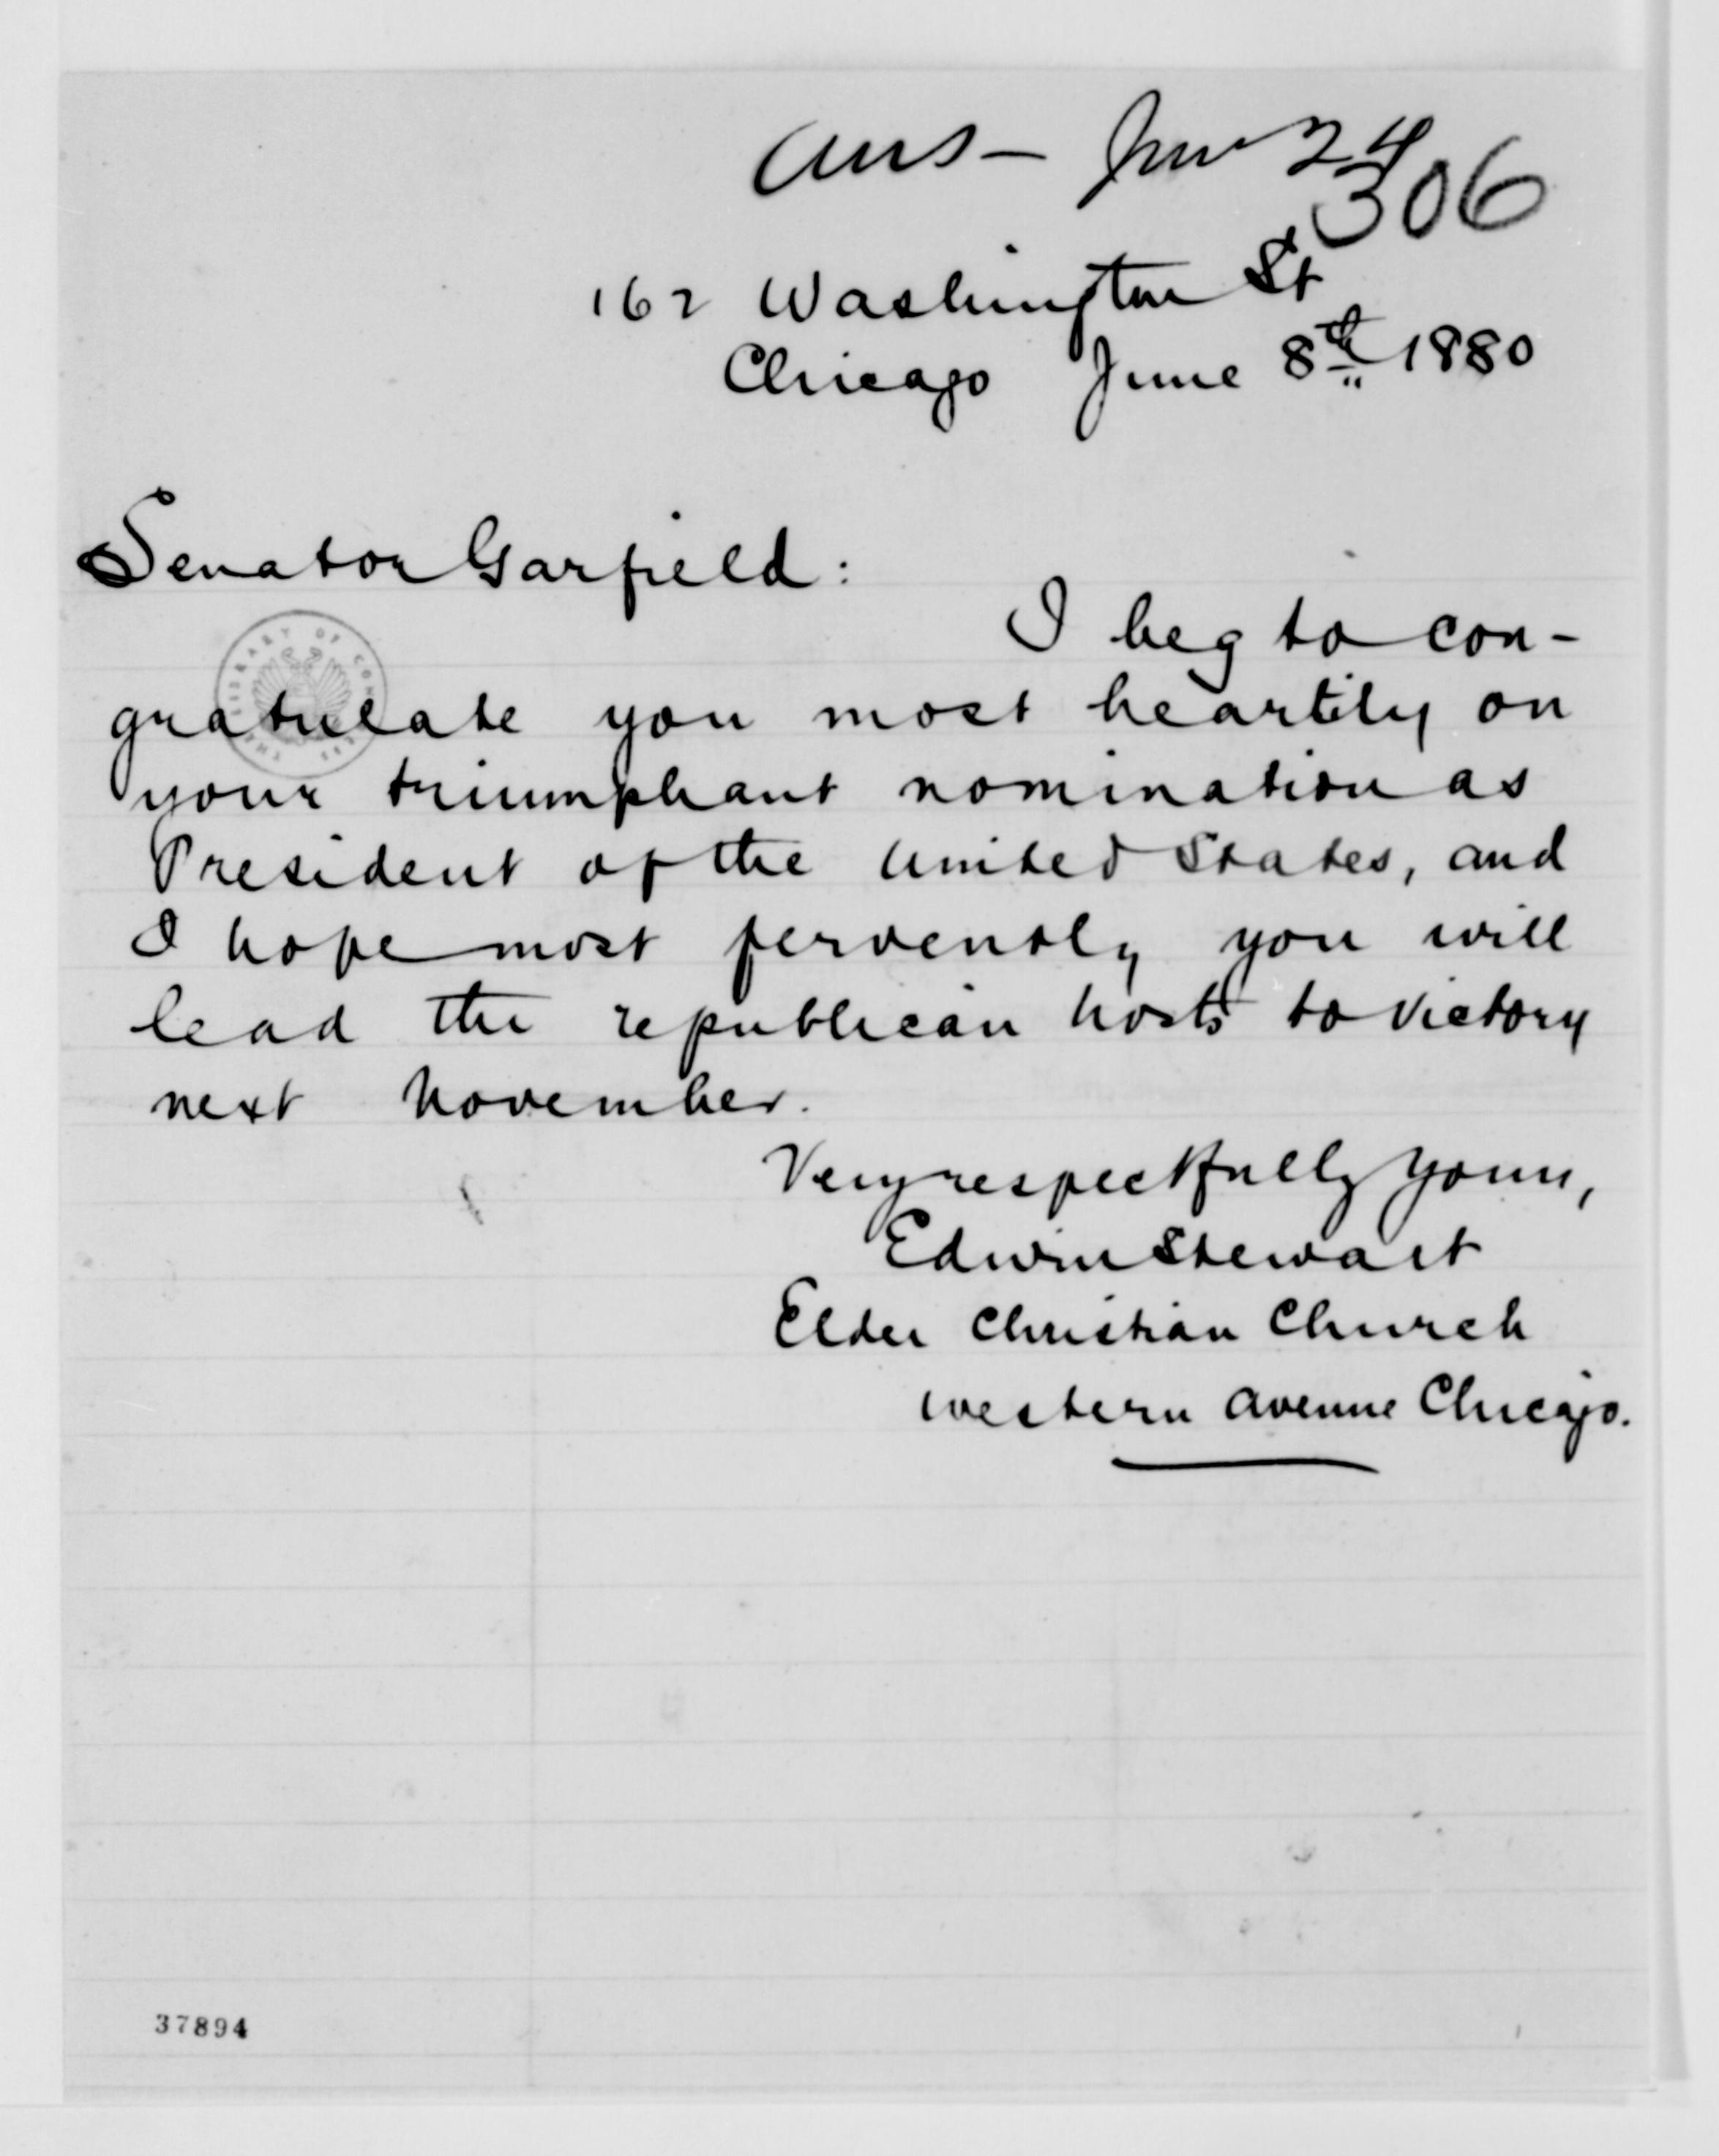 Ans — Jun 24
306
162 Washington St
Chicago June 8th 1880
Senator Garfield:
I beg to con-
gratulate you most heartily on
your triumphant nomination as
President of the United States, and
I hope most fervently you will
lead the republican hosts to victory
next November.
Very respectfully yours,
Edwin Stewart
Elder Christian Church
western avenue Chicago.
THE LIBRARY OF CONGRESS
37894